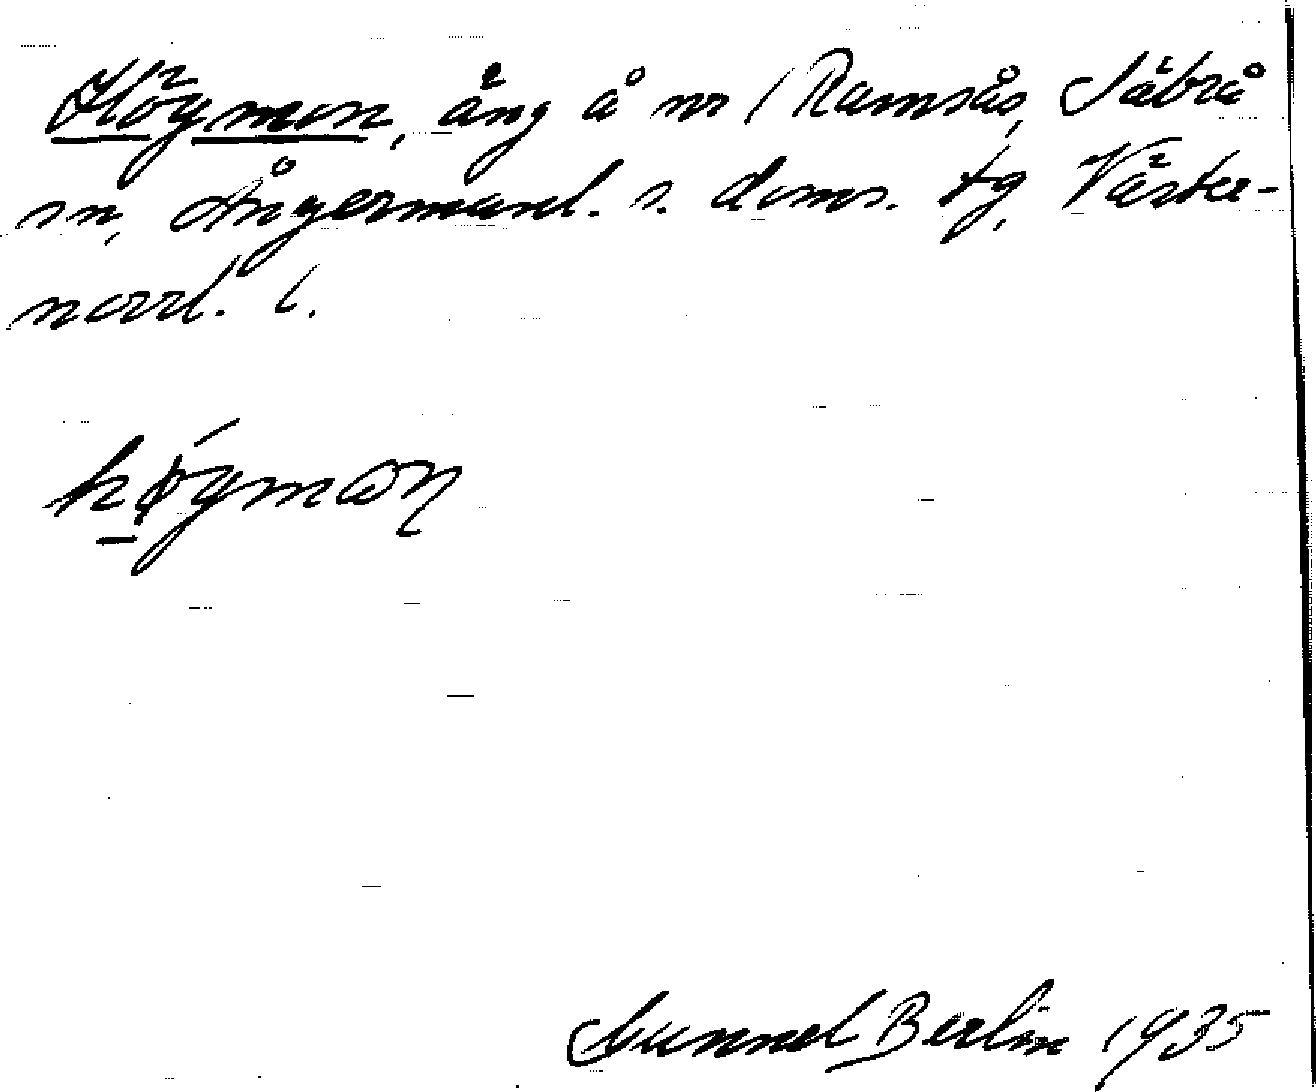 Högmon, äng å nr 1 Ramsås, Säbrå
sn, Ångermanl. s. doms. tg, Väster-
norrl. l.
høgmɷn
Gunnel Berlin 1935